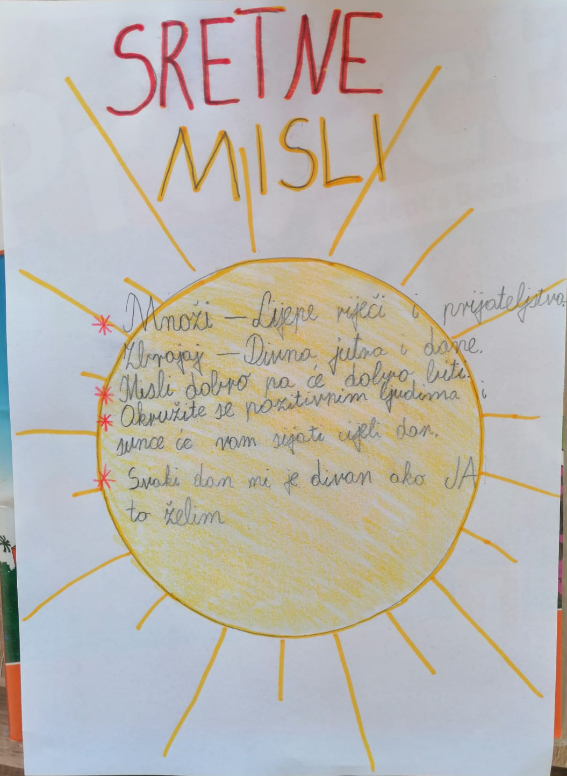 SRETNE
MISLI
* Množi - Lijepe riječi i prijateljstva.
Zbrajaj - Divna jutra i dane.
* Misli dobro pa će dobro biti.
* Okružite se pozitivnim ljudima i
sunce će vam sijati cijeli dan.
* Svaki dan mi je divan ako JA
to želim